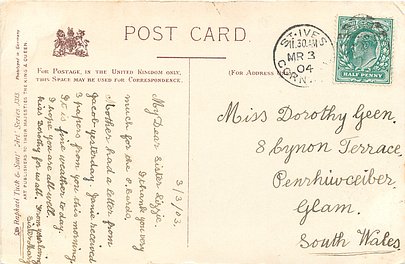 POST CARD.
FOR POSTAGE, IN THE UNITED KINGDOM ONLY,
THIS SPACE MAY BE USED FOR CORRESPONDENCE.
(FOR ADDRESS
ST. IVES
11.30 AM
MR 3
04
CORN
HALF PENNY
3/3/03.
My Dear Sister Lizzie.
I thank you very
much for the P. Cards.
Mother had a letter from
Jacob yesterday. Janie received
3 papers from you this morning
It is fine weather to day.
I hope you are all well.
Kiss Dorothy for us all. From your loving
Sister
Miss Dorothy Geen.
8 Cynon Terrace,
Penrhiwceiber,
Glam.
South Wales